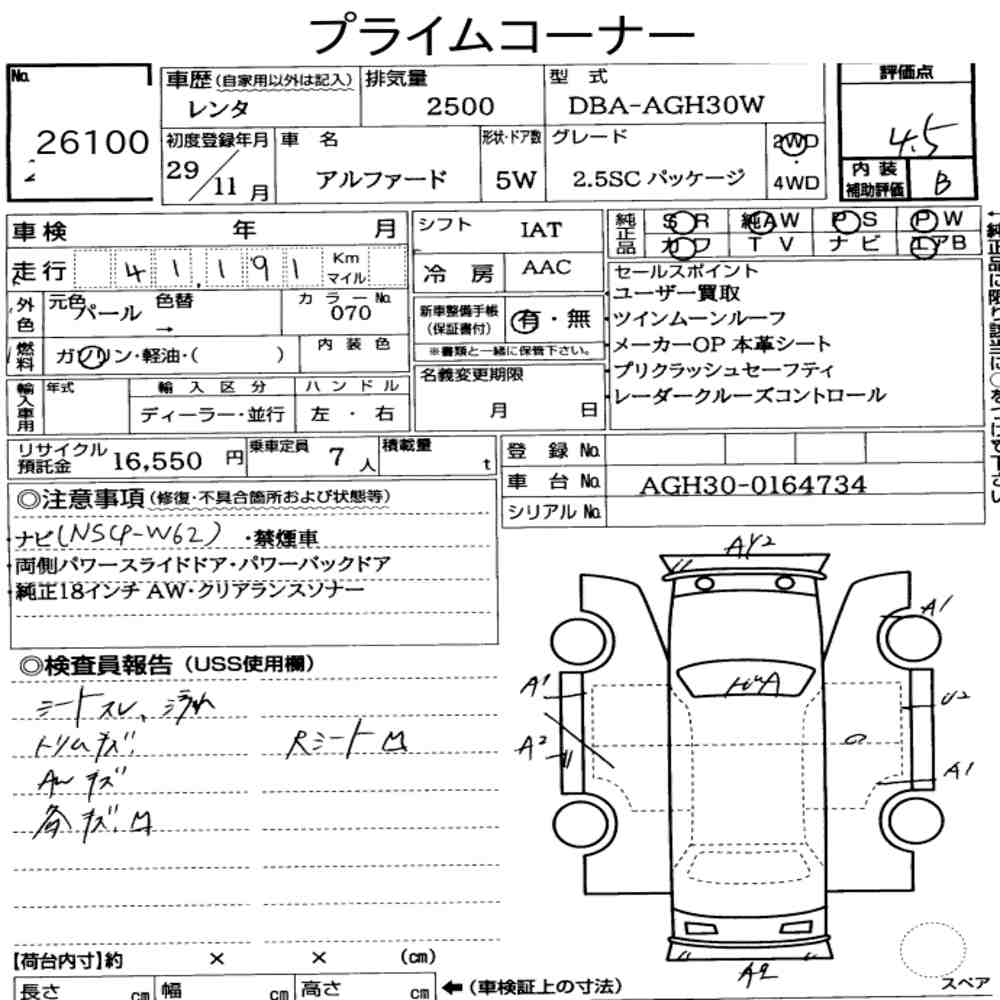 プライムコーナー
No.
26100
車歴 (自家用以外は記入)
レンタ
排気量
2500
型式
DBA-AGH30W
評価点
4.5
初度登録年月
29/11月
車名
アルファード
形状・ドア数
5W
グレード
2.5SC パッケージ
2WD
・
4WD
内装
補助評価
B
車検 年 月
走行 41,191 Km マイル
外色
元色 パール
色替
→
カラーNo.
070
燃料
ガソリン・軽油・( )
内装色
輸入車用
年式
輸入区分
ディーラー・並行
ハンドル
左・右
シフト IAT
冷房 AAC
新車整備手帳
(保証書付)
有・無
※書類と一緒に保管下さい。
名義変更期限
月 日
純正品
SR 純AW PS PW
カワ TV ナビ エアB
セールスポイント
ユーザー買取
ツインムーンルーフ
メーカーOP 本革シート
プリクラッシュセーフティ
レーダークルーズコントロール
リサイクル
預託金
16,550 円
乗車定員
7 人
積載量
t
登録No.
車台No. AGH30-0164734
シリアルNo.
◎注意事項 (修復・不具合箇所および状態等)
ナビ(NSCP-W62) ・禁煙車
両側パワースライドドア・パワーバックドア
純正18インチ AW・クリアランスソナー
◎検査員報告 (USS使用欄)
シートスレ、汚れ
トリムキズ
Rシート凹
AWキズ
各キズ凹
AY2
A1
A1
A2
U2
A1
A2
スペア
【荷台内寸】約 × × (cm)
長さ cm 幅 cm 高さ cm ←(車検証上の寸法)